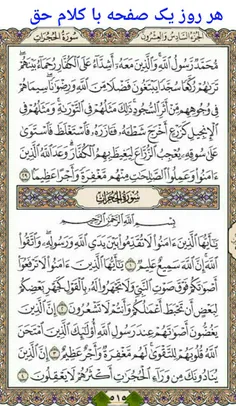 هر روز یک صفحه با کلام حق
سُورَةُ الحُجُرَاتِ الجُزءُ السَّادِسُ وَالعِشرُونَ
مُّحَمَّدٌ رَّسُولُ اللَّهِ وَالَّذِينَ مَعَهُ أَشِدَّاءُ عَلَى الْكُفَّارِ رُحَمَاءُ بَيْنَهُمْ
تَرَاهُمْ رُكَّعًا سُجَّدًا يَبْتَغُونَ فَضْلًا مِّنَ اللَّهِ وَرِضْوَانًا سِيمَاهُمْ
فِي وُجُوهِهِم مِّنْ أَثَرِ السُّجُودِ ذَلِكَ مَثَلُهُمْ فِي التَّوْرَاةِ وَمَثَلُهُمْ فِي
الْإِنجِيلِ كَزَرْعٍ أَخْرَجَ شَطْأَهُ فَآزَرَهُ فَاسْتَغْلَظَ فَاسْتَوَى
عَلَى سُوقِهِ يُعْجِبُ الزُّرَّاعَ لِيَغِيظَ بِهِمُ الْكُفَّارَ وَعَدَ اللَّهُ الَّذِينَ
ءَامَنُوا وَعَمِلُوا الصَّالِحَاتِ مِنْهُم مَّغْفِرَةً وَأَجْرًا عَظِيمًا ٢٩
سُورَةُ الحُجُرَاتِ
بِسْمِ اللَّهِ الرَّحْمَنِ الرَّحِيمِ
يَا أَيُّهَا الَّذِينَ ءَامَنُوا لَا تُقَدِّمُوا بَيْنَ يَدَيِ اللَّهِ وَرَسُولِهِ وَاتَّقُوا
اللَّهَ إِنَّ اللَّهَ سَمِيعٌ عَلِيمٌ ١ يَا أَيُّهَا الَّذِينَ ءَامَنُوا لَا تَرْفَعُوا
أَصْوَاتَكُمْ فَوْقَ صَوْتِ النَّبِيِّ وَلَا تَجْهَرُوا لَهُ بِالْقَوْلِ كَجَهْرِ بَعْضِكُمْ
لِبَعْضٍ أَن تَحْبَطَ أَعْمَالُكُمْ وَأَنتُمْ لَا تَشْعُرُونَ ٢ إِنَّ الَّذِينَ
يَغُضُّونَ أَصْوَاتَهُمْ عِندَ رَسُولِ اللَّهِ أُولَئِكَ الَّذِينَ امْتَحَنَ
اللَّهُ قُلُوبَهُمْ لِلتَّقْوَى لَهُم مَّغْفِرَةٌ وَأَجْرٌ عَظِيمٌ ٣ إِنَّ الَّذِينَ
يُنَادُونَكَ مِن وَرَاءِ الْحُجُرَاتِ أَكْثَرُهُمْ لَا يَعْقِلُونَ ٤
٥١٥